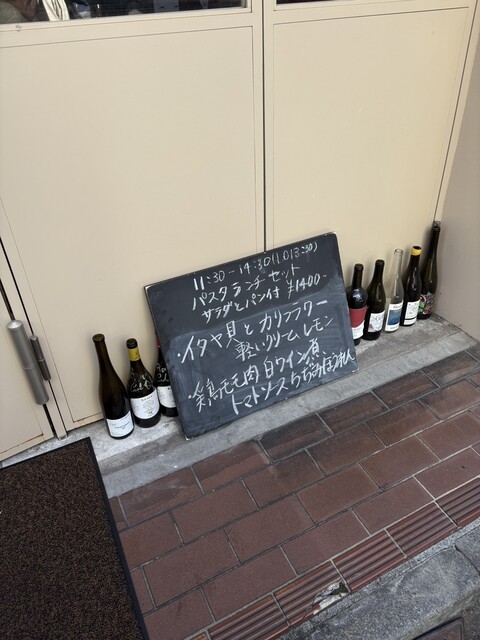 11:30-14:30(L.O13:30)
パスタランチセット
サラダとパン付 ¥1400-
・イタヤ貝とカリフラワー
軽いクリーム レモン
・鶏モモ肉白ワイン煮
トマトソース ちぢみほうれん